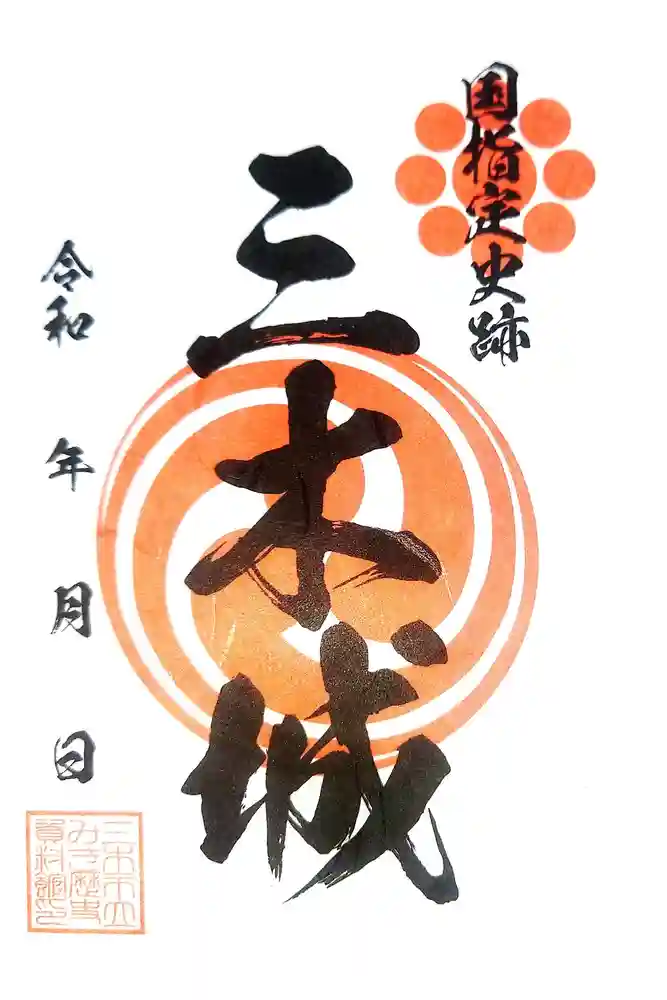 国指定史跡
三木城
令和 年 月 日
三木市立
みき歴史
資料館印